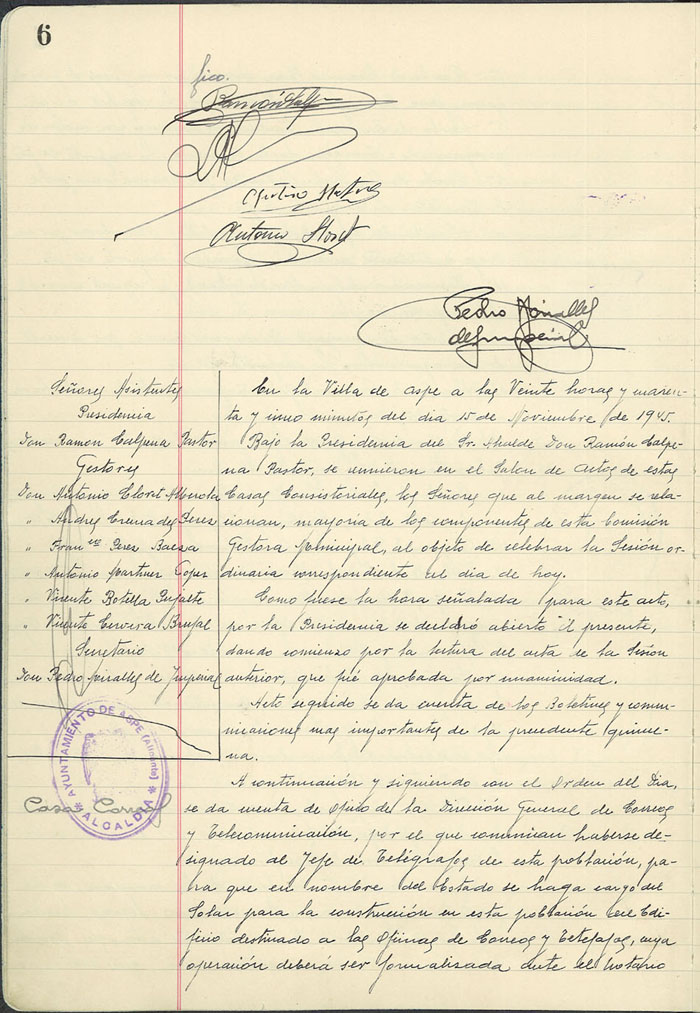 6
fico.
Pedro Mirallés
de Imperial
Señores Asistentes
Presidencia
Don Ramon Calpena Pastor
Gestores
Don Antonio Cloret Alberola
" Andres Cremades Perez
" Franco Perez Baeza
" Antonio Martinez Lopez
" Vicente Botella Pujalte
" Vicente Cervera Brufal
Secretario
Don Pedro Miralles de Imperial
AYUNTAMIENTO DE ASPE (Alicante)
ALCALDÍA
Casa Correos
En la Villa de Aspe a las Veinte horas y cuaren-
ta y cinco minutos del dia 15 de Noviembre de 1945.
Bajo la Presidencia del Sr. Alcalde Don Ramón Calpe-
na Pastor, se reunieron en el Salon de actos de estas
Casas Consistoriales, los Señores que al margen se rela-
cionan, mayoria de los componentes de esta Comisión
Gestora Municipal, al objeto de celebrar la Sesión or-
dinaria correspondiente al dia de hoy.
Como fuese la hora señalada para este acto,
por la Presidencia se declaró abierto el presente,
dando comienzo por la lectura del acta de la Sesión
anterior, que fué aprobada por unanimidad.
Acto seguido se da cuenta de los Boletines y comu-
nicaciones mas importantes de la precedente quince-
na.
A continuación y siguiendo con el Orden del Dia,
se da cuenta de oficio de la Dirección General de Correos
y Telecomunicación, por el que comunican haberse de-
signado al Jefe de Telégrafos de esta población, pa-
ra que en nombre del Estado se haga cargo del
Solar para la construcción en esta población del Edi-
ficio destinado a las Oficinas de Correos y Telegrafos, cuya
operación deberá ser formalizada ante el Notario